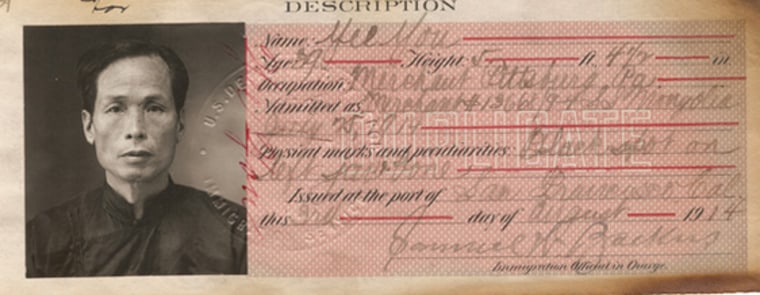 for
DESCRIPTION
Name: Yee Mou
Age 39 Height 5 ft. 4½ in.
Occupation: Merchant Pittsburg Pa.
Admitted as Merchant #13661 9-4 SS Mongolia
July 25, 1914
DUPLICATE
Physical marks and peculiarities: Black spot on
left jaw bone
Issued at the port of San Francisco Cal
this 3rd day of August 1914
Samuel W. Backus
Immigration Official in Charge.
U.S. DE